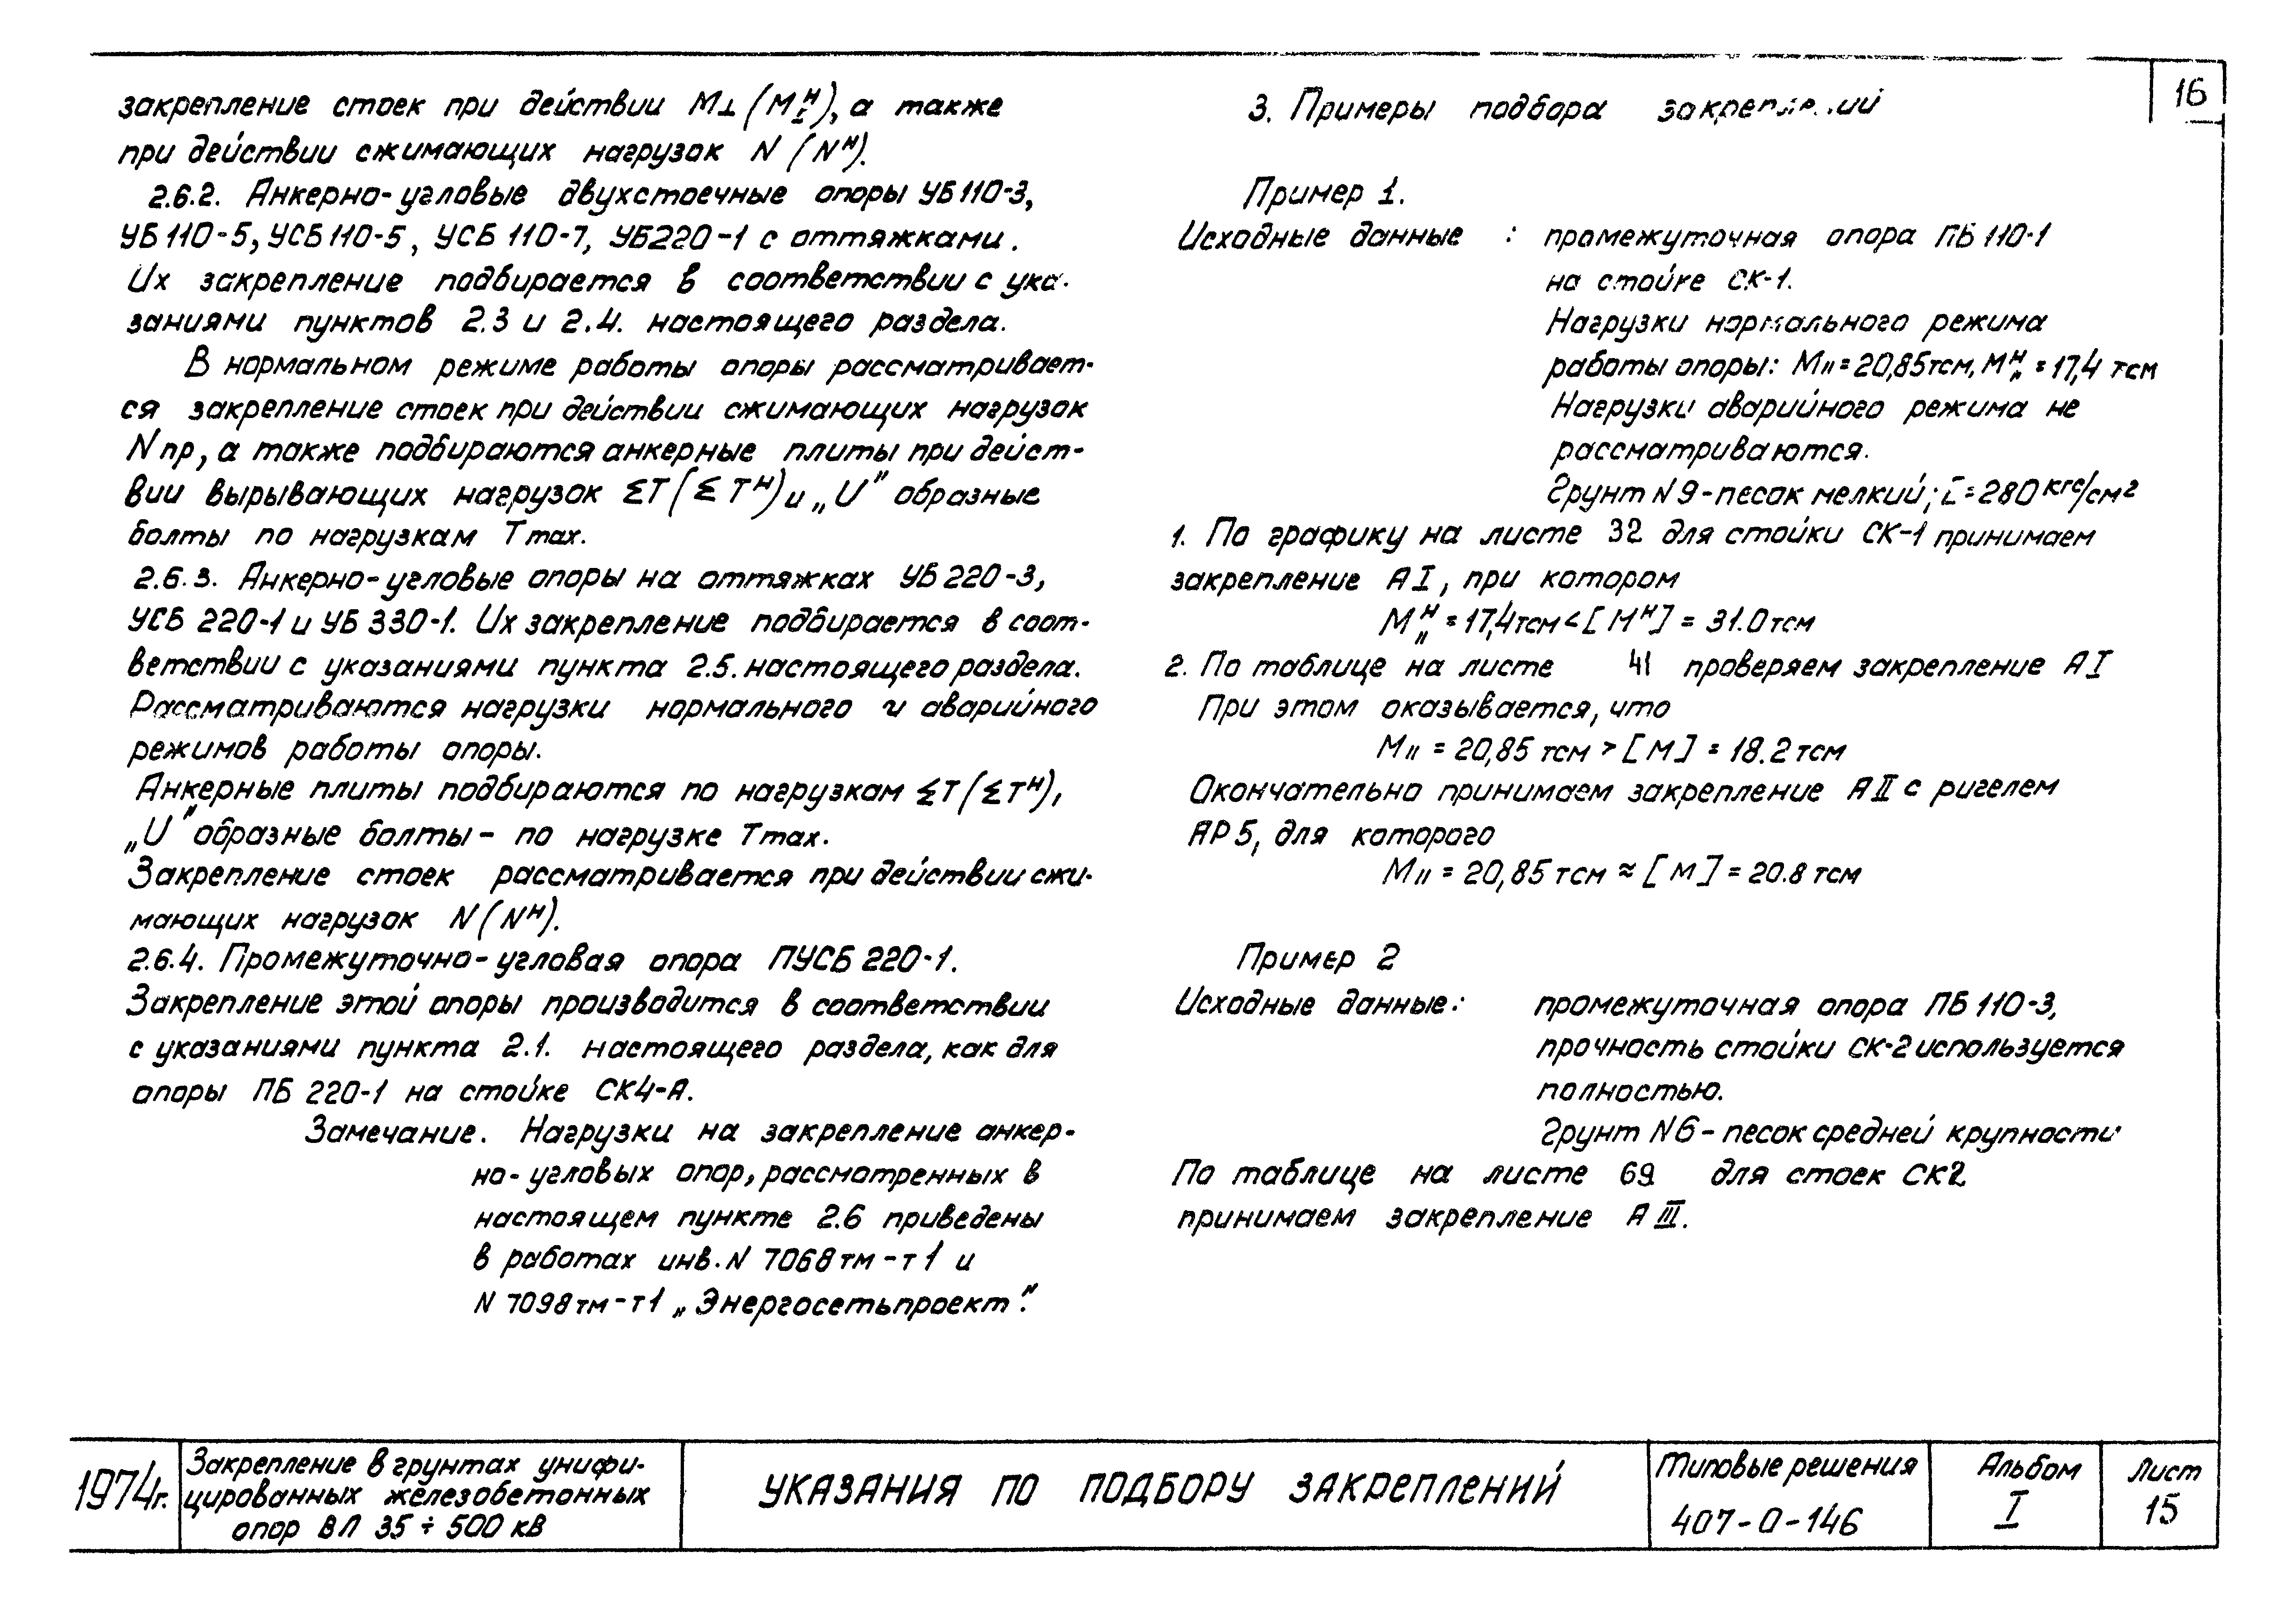 закрепление стоек при действии M⊥ (M⊥ᴴ), а также
при действии сжимающих нагрузок N (Nᴴ).
2.6.2. Анкерно-угловые двухстоечные опоры УБ110-3,
УБ110-5, УСБ110-5, УСБ 110-7, УБ220-1 с оттяжками.
Их закрепление подбирается в соответствии с ука-
заниями пунктов 2.3 и 2.4. настоящего раздела.
В нормальном режиме работы опоры рассматривает-
ся закрепление стоек при действии сжимающих нагрузок
Nпр, а также подбираются анкерные плиты при дейст-
вии вырывающих нагрузок ΣT (ΣTᴴ) и „U" образные
болты по нагрузкам Tmax.
2.6.3. Анкерно-угловые опоры на оттяжках УБ220-3,
УСБ 220-1 и УБ 330-1. Их закрепление подбирается в соот-
ветствии с указаниями пункта 2.5. настоящего раздела.
Рассматриваются нагрузки нормального и аварийного
режимов работы опоры.
Анкерные плиты подбираются по нагрузкам ΣT (ΣTᴴ),
„U" образные болты - по нагрузке Tmax.
Закрепление стоек рассматривается при действии сжи-
мающих нагрузок N (Nᴴ).
2.6.4. Промежуточно-угловая опора ПУСБ 220-1.
Закрепление этой опоры производится в соответствии
с указаниями пункта 2.1. настоящего раздела, как для
опоры ПБ 220-1 на стойке СК4-А.
Замечание. Нагрузки на закрепление анкер-
но-угловых опор, рассмотренных в
настоящем пункте 2.6 приведены
в работах инв. N 7068тм-т1 и
N 7098тм-т1 „Энергосетьпроект".
16
3. Примеры подбора закреплений
Пример 1.
Исходные данные : промежуточная опора ПБ110-1
на стойке СК-1.
Нагрузки нормального режима
работы опоры: M॥ = 20,85тсм, M॥ᴴ = 17,4 тсм
Нагрузки аварийного режима не
рассматриваются.
Грунт N9 - песок мелкий; E = 280 кгс/см²
1. По графику на листе 32 для стойки СК-1 принимаем
закрепление А I, при котором
M॥ᴴ = 17,4тсм < [Mᴴ] = 31.0тсм
2. По таблице на листе 41 проверяем закрепление А I
При этом оказывается, что
M॥ = 20,85 тсм > [M] = 18.2тсм
Окончательно принимаем закрепление А II с ригелем
АР5, для которого
M॥ = 20,85 тсм ≈ [M] = 20.8 тсм
Пример 2
Исходные данные: промежуточная опора ПБ110-3,
прочность стойки СК-2 используется
полностью.
Грунт N6 - песок средней крупности
По таблице на листе 69 для стоек СК2
принимаем закрепление А III.
1974г.
Закрепление в грунтах унифи-
цированных железобетонных
опор ВЛ 35 ÷ 500 кВ
УКАЗАНИЯ ПО ПОДБОРУ ЗАКРЕПЛЕНИЙ
Типовые решения
407-0-146
Альбом
I
Лист
15